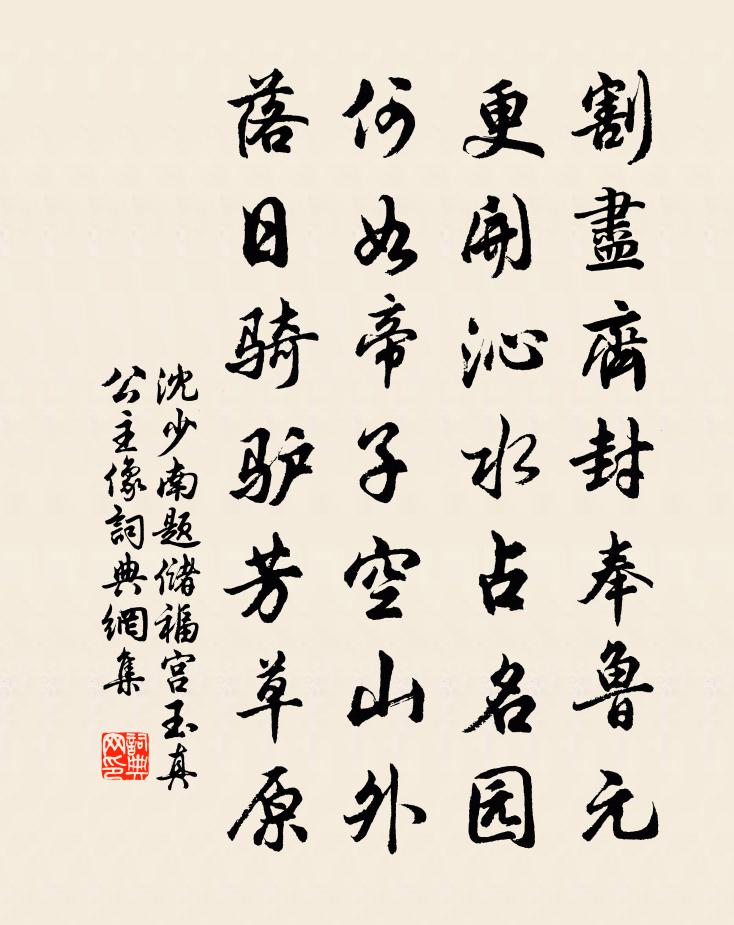 割盡齊封奉鲁元
更開沁水占名园
何如帝子空山外
落日骑驴芳草原
沈少南题儲福宫玉真
公主像詞典網集
詞典
网印